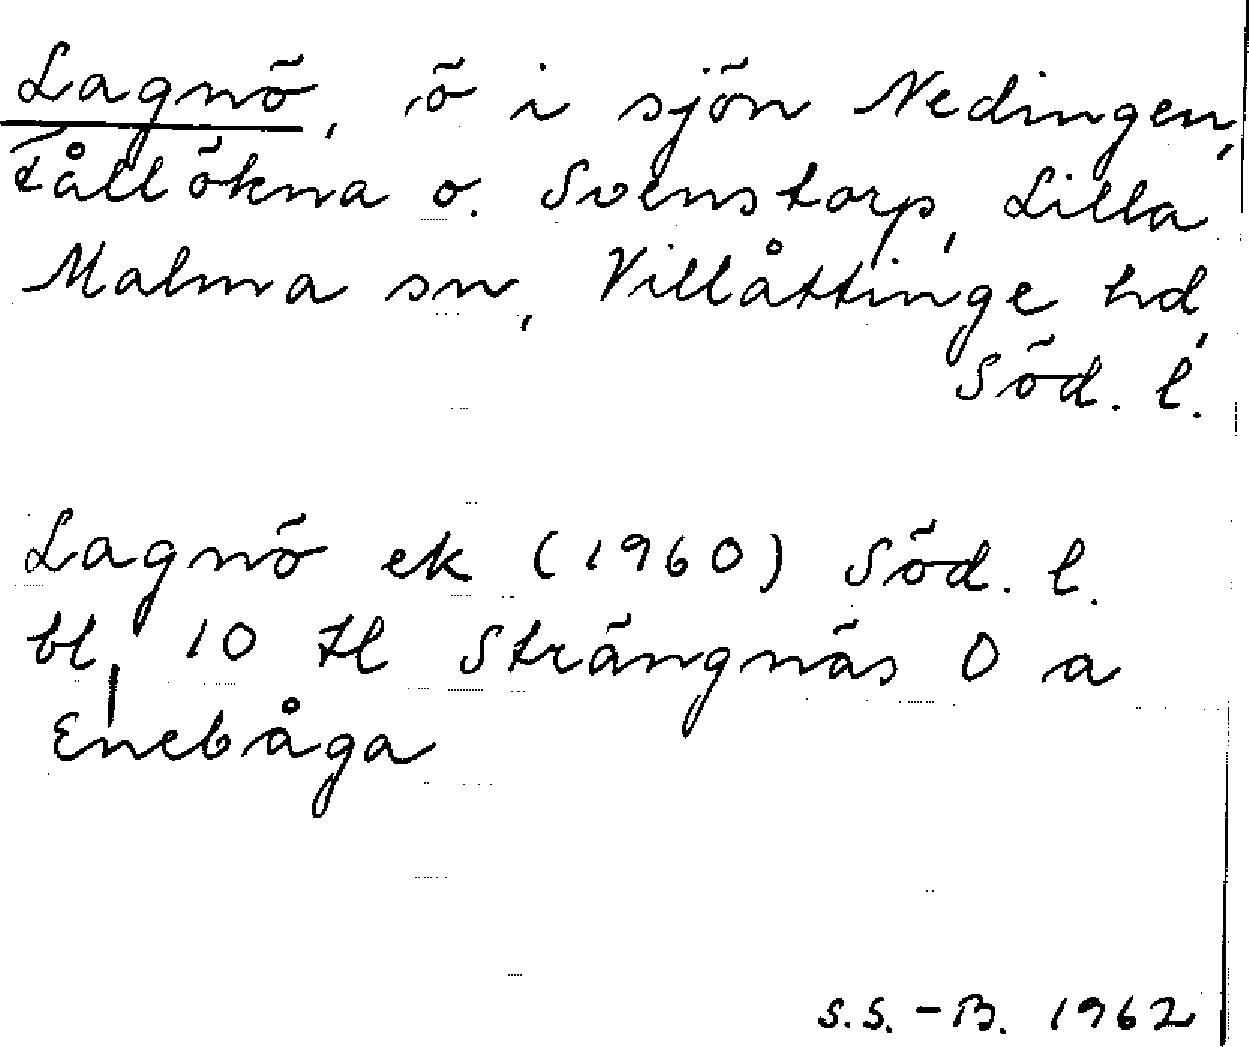 Lagnö, ö i sjön Nedingen,
Tållökna o. Svenstorp, Lilla
Malma sn, Villåttinge hd,
Söd. l.
Lagnö ek (1960) Söd. l.
bl. 10 tl Strängnäs 0 a
Enebåga
S.S.-B. 1962